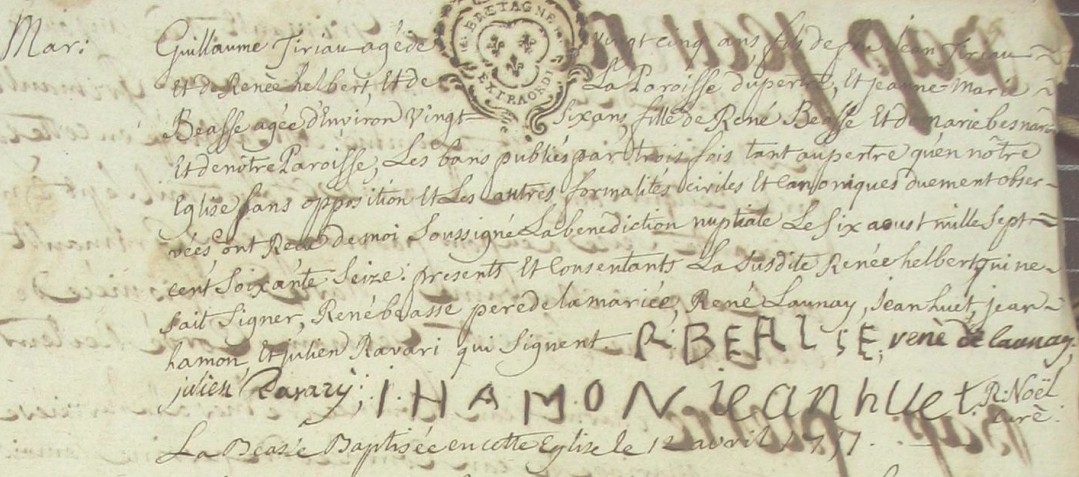 Mari
BRETAGNE
EXTRAORD
Guillaume Tiriau agé de vingt cinq ans, fils de feu Jean Tiriau
Et de Renée helbert, Et de La Paroisse du pertre, Et jeanne Marie
Beasse agée d'Environ Vingt Six ans, fille de René Beasse Et de marie besnard
Et de nôtre Paroisse, Les bans publiés par trois fois tant au pertre qu'en nôtre
Eglise sans opposition Et Les autres formalités civiles Et Canoniques duement obser-
vées, ont Recu de moi Soussigné La benediction nuptiale Le Six aoust mille Sept
cent Soixante Seize: presents Et Consentants La Susdite Renée helbert qui ne
sait Signer, René béasse pere de la mariée, René Launay, Jean huet, jean
hamon Et julien Ravari qui Signent. R BEASSE, rené de launay,
julien Ravary; I HAMON jean huet. R. Noël
curé.
La Beasse Baptisée en cette Eglise le 12 avril